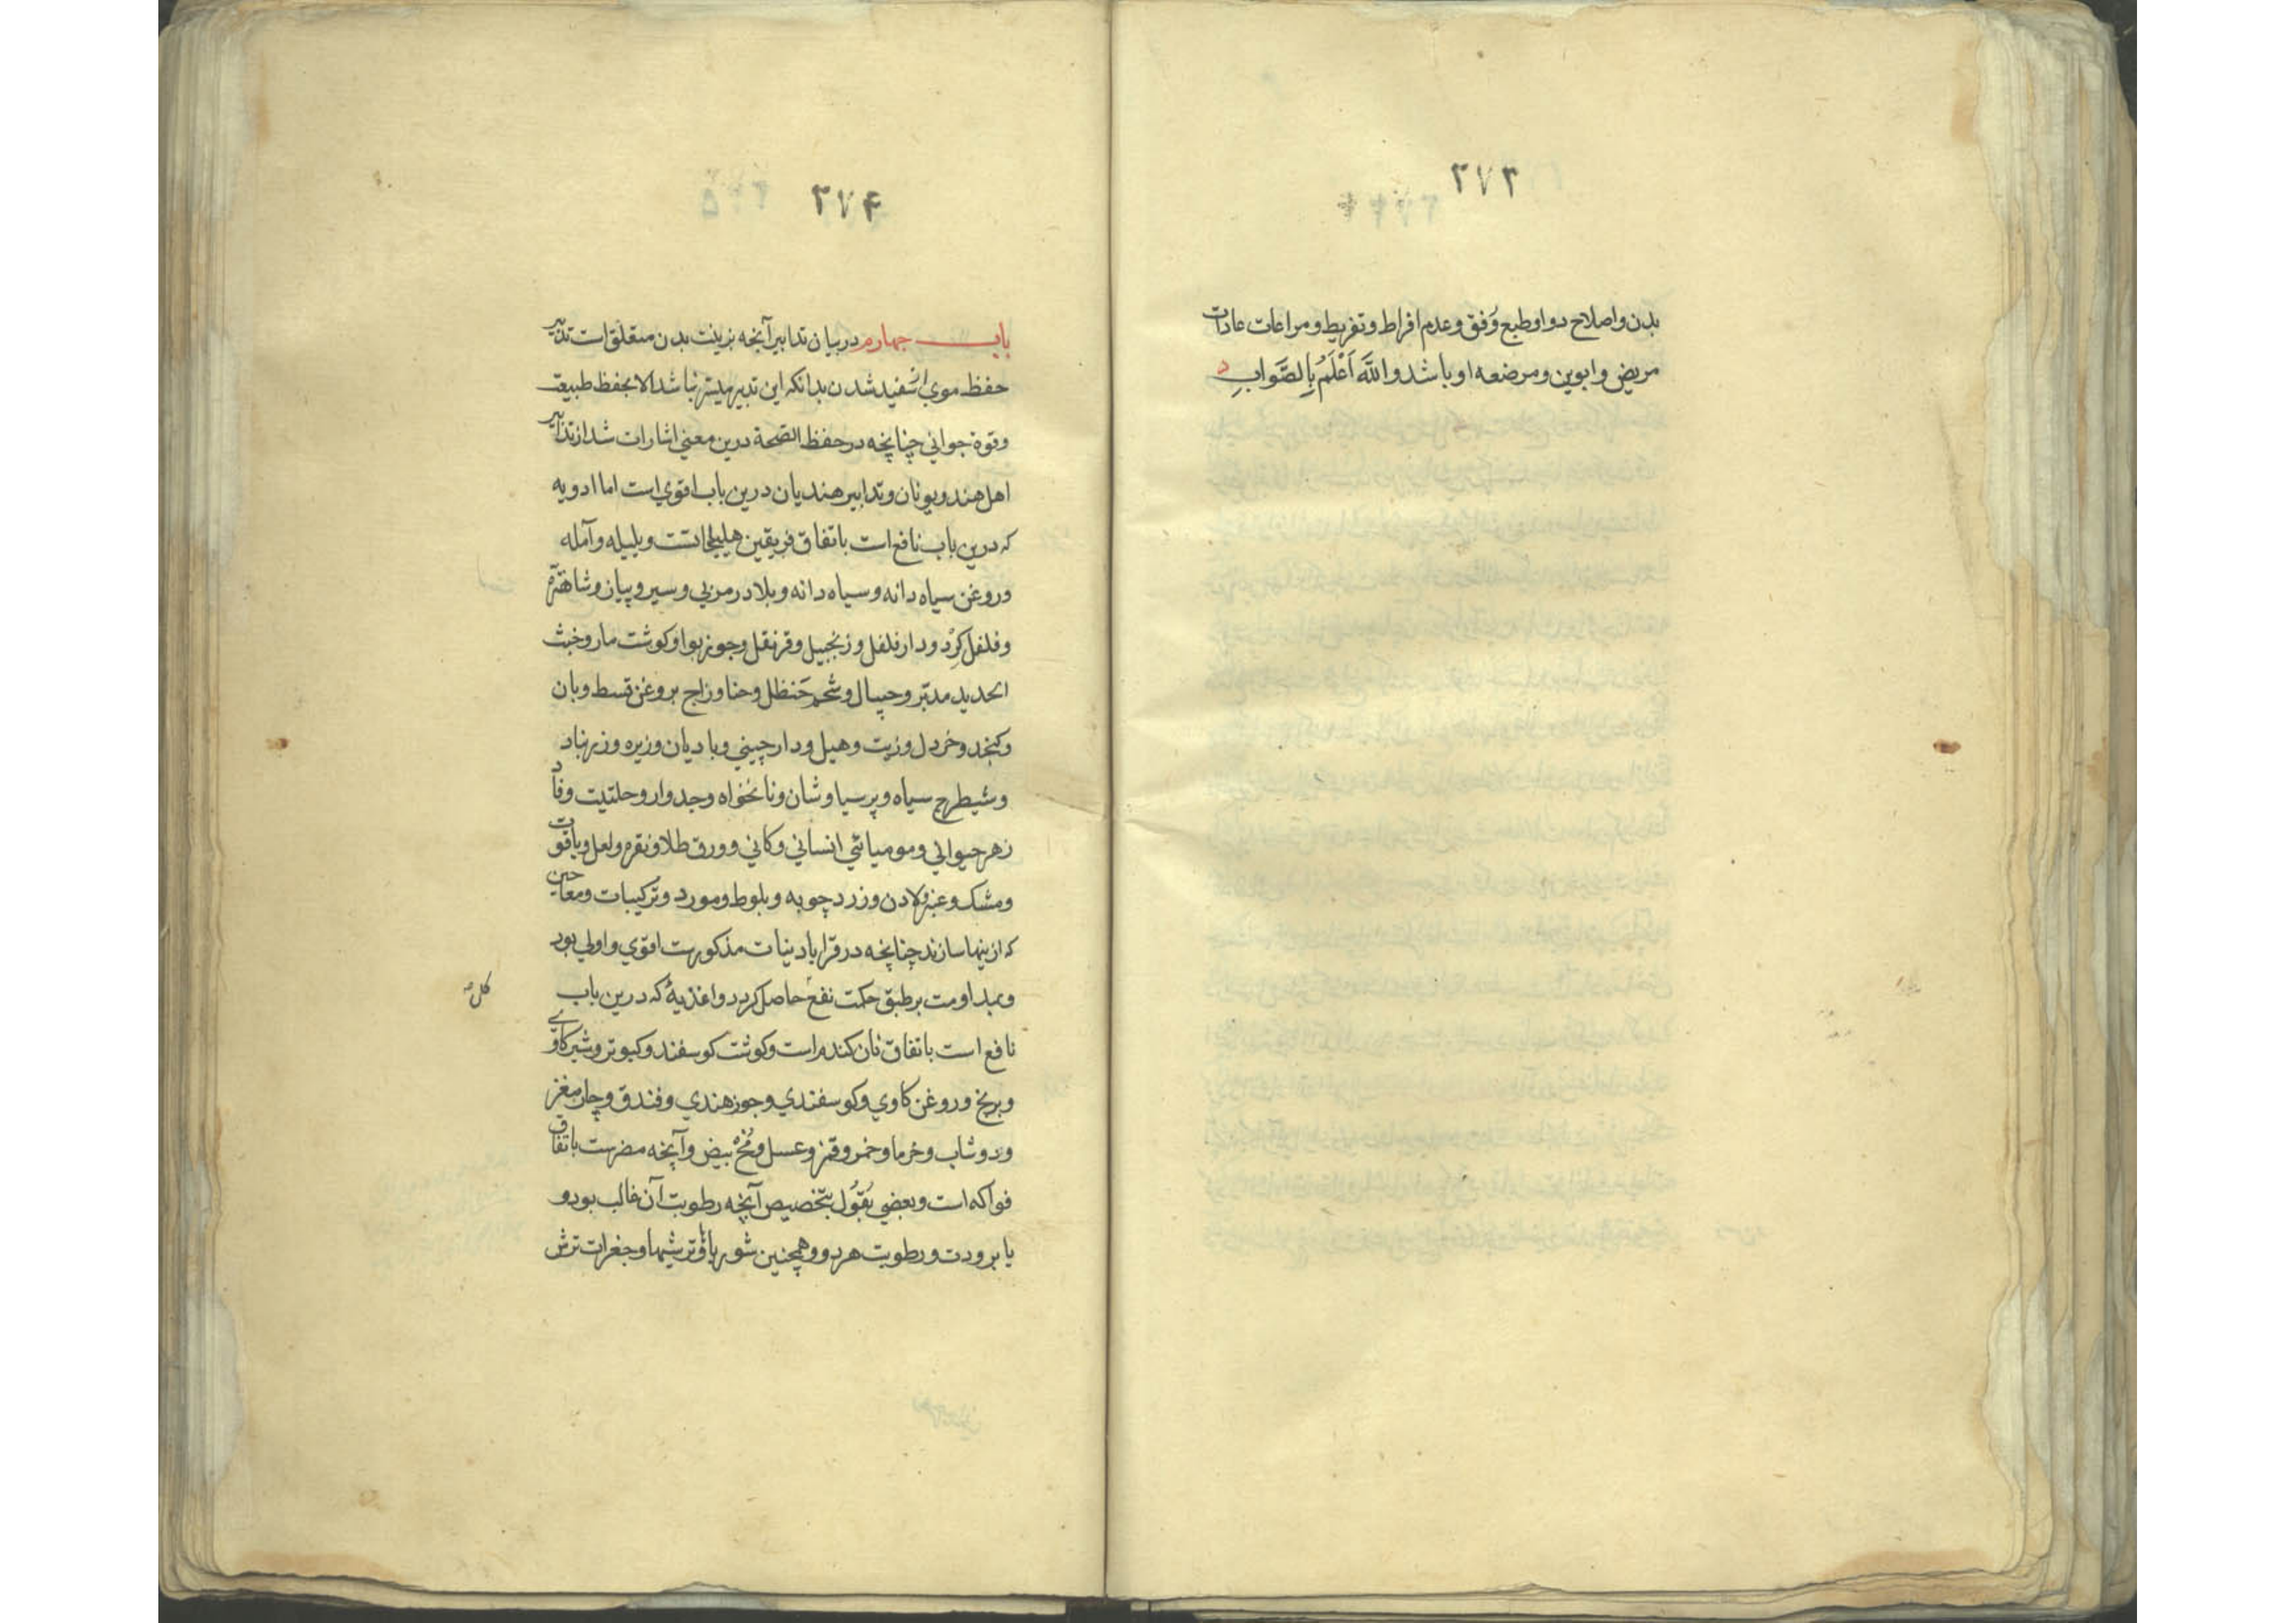 ۳۷۳
بدن واصلاح دوا وطبع وفق وعدم افراط وتفریط ومراعات عادات
مریض وابوین ومرضعه او باشد واللّٰه اَعْلَمُ بِالصَّوابِ
۳۷۴
باب چهارم دربیان تدابیر آنچه بزینت بدن متعلّق است تدبیر
حفظ موي از سفید شدن بدانکه این تدبیر میسّر نباشد الا بحفظ طبیعت
وقوة جواني چنانچه در حفظ الصّحة درین معني اشارات شد از تدابیر
اهل هند ویونان وتدابیر هندیان درین باب اقوي است اما ادویه
که درین باب نافع است باتفاق فریقین هلیلجات است وبلیله وآمله
وروغن سیاه دانه وسیاه دانه وبلادر مربي وسیر وپیاز وشاهتره
وفلفل کِرْد ودارفلفل وزنجبیل وقرنفل وجوز بوا وکوشت مار وخبث
الحدید مدبّر وجیپال وشحم حَنظل وحنا وزاج بروغن قسط وبان
وکنجد وخردل وزیت وهیل ودارچیني وبادیان وزیره وزرنباد
وشیطرج سیاه وپرسیاوشان ونانخواه وجدوار وحلتیت وفاد
زهر حیواني ومومیائي انساني وکاني وورق طلا ونقره ولعل ویاقوت
ومشک وعنبر ولادن وزردچوبه وبلوط ومورد وترکیبات ومعاجین
که ازینها سازند چنانچه در قرابادینات مذکورست اقوي واولي بود
وبمداومت برطبق حکمت نفع حاصل کردد واغذیۀ که درین باب
کل
نافع است باتفاق نان کندم است وکوشت کوسفند وکبوتر وشیر کاوے
وبرنج وروغن کاوي وکوسفندي وجوز هندي وفندق وچارمغز
ودوشاب وخرما وخمر وقمز وعسل ومُخّ بیض وآنچه مضرست باتفاق
فواکه است وبعضي بُقُول بتخصیص آنچه رطوبت آن غالب بود و
یا برودت ورطوبت هر دو وهمچنین شورباها وترشیها وجغرات ترش